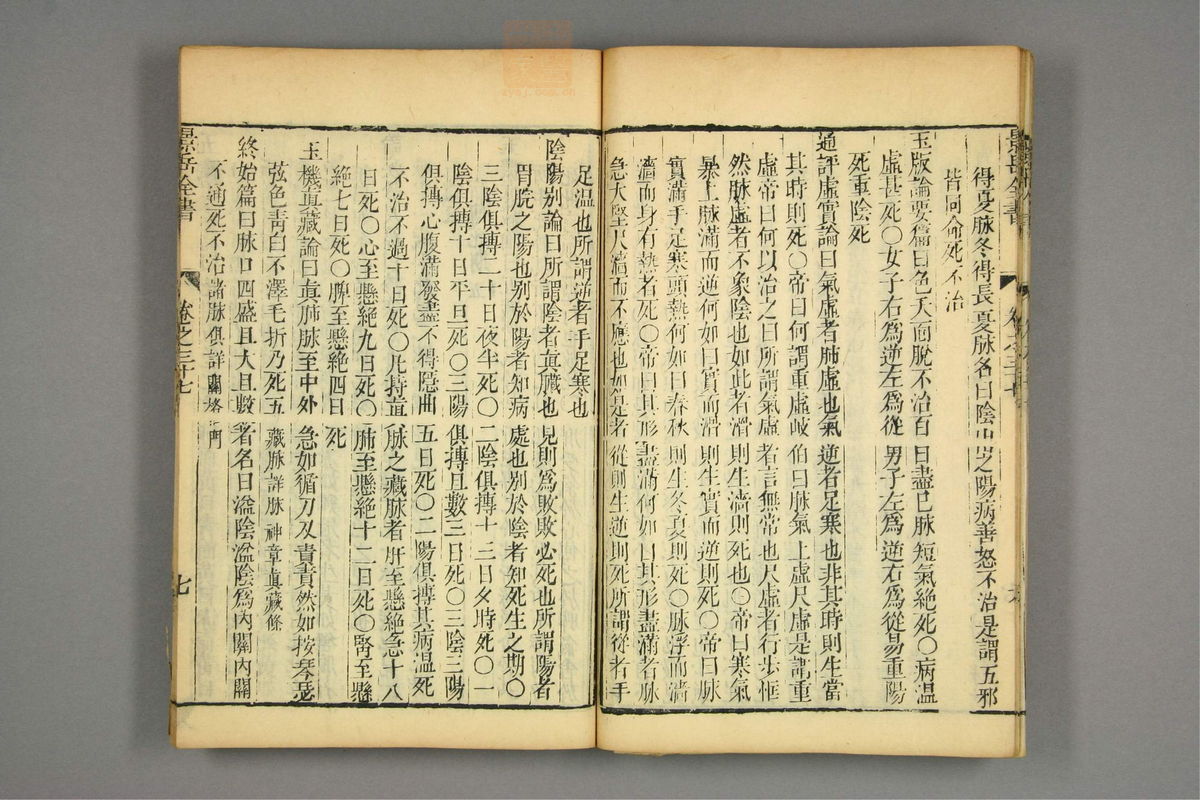 景岳全書
卷之三十七
六
得夏脉冬得長夏脉名曰陰出之陽病善怒不治是謂五邪
皆同命死不治
玉版論要篇曰色夭面脫不治百日盡已脉短氣絕死○病温
虛甚死○女子右為逆左為從男子左為逆右為從易重陽
死重陰死
通評虛實論曰氣虛者肺虛也氣逆者足寒也非其時則生當
其時則死○帝曰何謂重虛岐伯曰脉氣上虛尺虛是謂重
虛帝曰何以治之曰所謂氣虛者言無常也尺虛者行步恇
然脉虛者不象陰也如此者滑則生濇則死也○帝曰寒氣
暴上脉滿而逆何如曰實而滑則生實而逆則死○帝曰脉
實滿手足寒頭熱何如曰春秋則生冬夏則死○脉浮而濇
濇而身有熱者死○帝曰其形盡滿何如曰其形盡滿者脉
急大堅尺濇而不應也如是者從則生逆則死所謂從者手
足温也所謂逆者手足寒也
陰陽别論曰所謂陰者真臟也見則為敗敗必死也所謂陽者
胃脘之陽也别於陽者知病處也别於陰者知死生之期○
三陰俱搏二十日夜半死○二陰俱搏十三日夕時死○一
陰俱搏十日平旦死○三陽俱搏且數三日死○三陰三陽
俱搏心腹滿發盡不得隱曲五日死○二陽俱搏其病温死
不治不過十日死○凡持真脉之藏脉者肝至懸絕急十八
日死○心至懸絕九日死○肺至懸絕十二日死○腎至懸
絕七日死○脾至懸絕四日死
玉機真藏論曰真肺脉至中外急如循刀刃責責然如按琴瑟
弦色青白不澤毛折乃死五藏脉詳脉神章真藏條
終始篇曰脉口四盛且大且數者名曰溢陰溢陰為內關內關
不通死不治諸脉俱詳關格門
景岳全書
卷之三十七
七